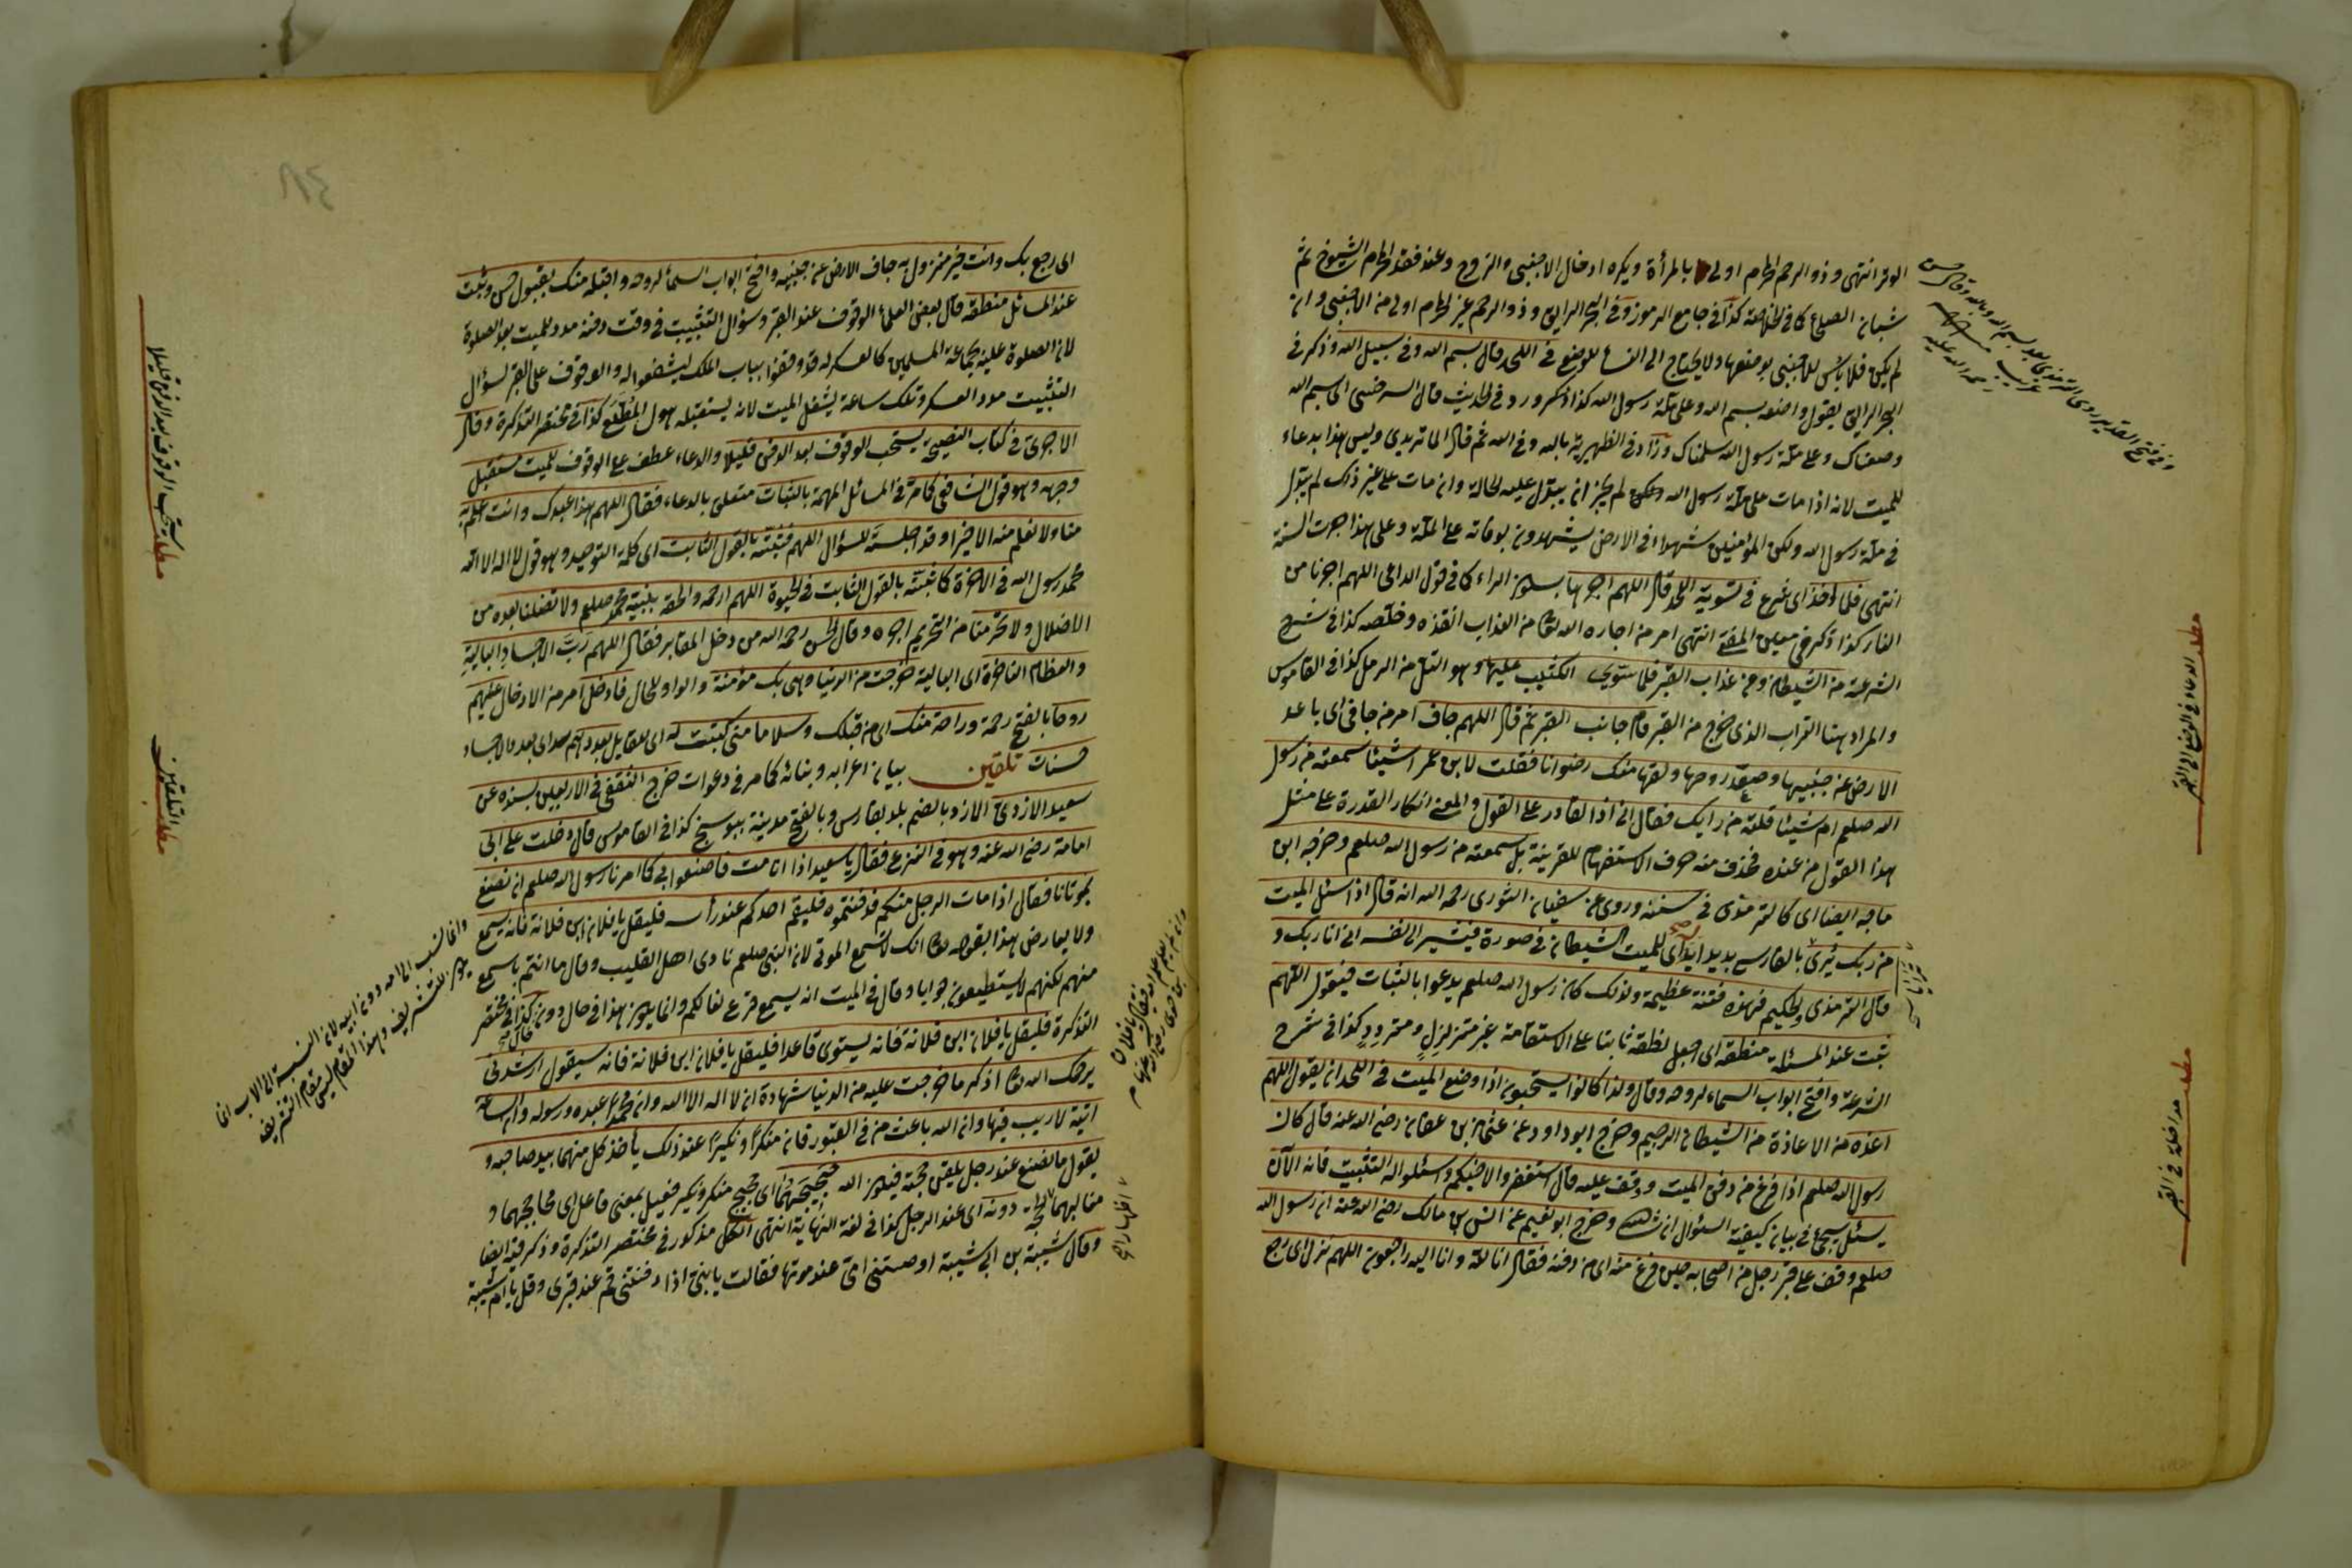 الوتر انتهى وذو الرحم المحرم اولى بالمرأة ويكره ادخال الاجنبى والزوج وعند فقد المحرم الشيوخ ثم
شبان الصلحاء كما فى الخلاصة كذا فى جامع الرموز وفى البحر الرايق وذو الرحم غير المحرم اولى من الاجنبى وان
لم يكن فلا بأس للاجنبى بوضعها ولا يحتاج الى النساء للوضع فى اللحد وقال بسم الله وفى سبيل الله وذكر فى
البحر الرايق يقول واضعه بسم الله وعلى ملة رسول الله كذا ذكر ورد فى الحديث قال السرخسى اى بسم الله
وضعناك وعلى ملة رسول الله سلمناك وزاد فى الظهيرية بالله وفى الله ثم قال الماتريدى وليس هذا بدعاء
للميت لانه اذا مات على ملة رسول الله لم يجز ان يبدل عليه الحالة وان مات على غير ذلك لم يبدل
فى ملة رسول الله ولكن المؤمنين شهداء فى الارض يشهدون بوفاته على الملة وعلى هذا جرت السنة
انتهى فلما اخذ اى شرع فى تسوية اللحد قال اللهم اجرها بسكون الراء كما فى قول الداعى اللهم اجرنا من
النار كذا ذكر فى انتهى امر من اجاره الله تعالى من العذاب انقذه وخلصه كذا فى شرح
الشرعة من الشيطان ومن عذاب القبر فلما ستوى الكثيب عليها وهو التل من الرمل كذا فى القاموس
والمراد هنا التراب الذى خرج من القبر قام جانب القبر ثم قال اللهم جاف امر من جافى اى باعد
الارض عن جنبيها وصعد روحها ولقها منك رضوانا فقلت لابن عمر اشيئا سمعته من رسول
الله صلعم ام شيئا قلته من رايك فقال انى اذا لقادر على القول والمعنى انكار القدرة على مثل
هذا القول من عنده فحذف منه حرف الاستفهام للقرينة بل سمعته من رسول الله صلعم وخرجه ابن
ماجه ايضا اى كالترمذى فى سننه وروى عن سفيان الثورى رحمه الله انه قال اذا سئل الميت
من ربك يرى بالفارسى للميت الشيطان فى صورة فيشير الى نفسه انى انا ربك و
قال الترمذى والحكيم فهذه فتنة عظيمة ولذلك كان رسول الله صلعم يدعوا بالثبات فيقول اللهم
ثبت عند المسئلة منطقه اى اجعل نطقه ثابتا على الاستقامة غير متزلزل ومتردد كذا فى شرح
الشرعة وافتح ابواب السماء لروحه وقال ولذا كانوا يستحبون اذا وضع الميت فى اللحد ان يقول اللهم
اعذه من الاعاذة من الشيطان الرجيم وخرج ابو داود عن عثمان بن عفان رضى الله عنه قال كان
رسول الله صلعم اذا فرغ من دفن الميت وقف عليه قال استغفروا لاخيكم واسئلوا له التثبيت فانه الآن
يسئل سيجئ فى بيان كيفية السؤال ان شاء الله وخرج ابو نعيم عن انس بن مالك رضى الله عنه ان رسول الله
صلعم وقف على قبر رجل من اصحابه حين فرغ منه اى من دفنه فقال انا لله وانا اليه راجعون اللهم نزل اى رجع
وفى فتح القدير روى الترمذى بعد بسم الله وبالله وقال حسن
غريب
رحمة الله عليه
مطلب الدعاء فى الوضع الى القبر
مطلب مداخلة فى القبر
الى رجع بك وانت خير منزول به جاف الارض عن جنبيه وافتح ابواب السماء لروحه واقبله منك بقبول حسن وثبت
عند المسائل منطقه قال بعض العلماء الوقوف عند القبر وسؤال التثبيت فى وقت دفنه مدد للميت بعد الصلوة
لان الصلوة عليه بجماعة المسلمين كالعسكر له قد وقفوا بباب الملك ليشفعوا له والوقوف على القبر لسؤال
التثبيت مدد العسكر وتلك ساعة يشغل الميت لانه يستقبله هول المطلع كذا فى مختصر التذكرة وقال
الاجرى فى كتاب النصيحة يستحب الوقوف بعد الدفن قليلا والدعاء عطف على الوقوف للميت مستقبل
وجهه وهو قول الشافعى كما مر فى المسائل المهمة بالثبات متعلق بالدعاء فقال اللهم هذا عبدك وانت اعلم به
منا ولا نعلم منه الا خيرا وقد اجلسته للسؤال اللهم فثبته بالقول الثابت اى كلمة التوحيد وهو قول لا اله الا الله
محمد رسول الله فى الاخرة كما ثبته بالقول الثابت فى الحيوة اللهم ارحمه والحقه بنبيه محمد صلعم ولا تضلنا بعده من
الاضلال ولا تحرمنا من التحريم اجره وقال الحسن رحمه الله من دخل المقابر فقال اللهم رب الاجساد البالية
والعظام الناخرة اى البالية خرجت من الدنيا وهى بك مؤمنة والواو للحال فادخل امر من الادخال عليهم
روحا بالفتح رحمة وراحة منك اى من قبلك وسلاما منى كتبت له اى للقايل بعددهم
حسنات تلقين بيان اعرابه وبنائه كما مر فى دعوات خرج الثقفى فى الاربعين بسنده عن
سعيد الازدى الازد بالضم بلد بفارس وبالفتح مدينة كذا فى القاموس قال دخلت على ابى
امامة رضى الله عنه وهو فى النزع فقال يا سعيد اذا انا مت فاصنعوا بى كما امرنا رسول الله صلعم ان نصنع
بموتانا فقال اذا مات الرجل منكم فدفنتموه فليقم احدكم عند رأسه فليقل يا فلان ابن فلانة فانه يسمع
ولا يعارض هذا بقوله تعالى انك لا تسمع الموتى لان النبى صلعم نادى اهل القليب وقال ما انتم باسمع
منهم لكنهم لا يستطيعون جوابا وقال فى الميت انه يسمع قرع نعالكم وانما يكون هذا فى حال دون حال كذا فى مختصر
التذكرة فليقل يا فلان ابن فلانة فانه يستوى قاعدا فليقل يا فلان ابن فلانة فانه سيقول ارشدنى
يرحمك الله تعالى اذكر ما خرجت عليه من الدنيا شهادة ان لا اله الا الله وان محمدا عبده ورسوله وان الساعة
اتية لا ريب فيها وان الله باعث من فى القبور فان منكرا ونكيرا عند ذلك يأخذ كل منهما بيد صاحبه و
يقول ما نصنع عند رجل يلقن حجته فيكون الله حجيجهما اى حجيج منكر ونكير فعيل بمعنى فاعل اى محاججهما و
مغالبهما الحجة دونه اى عند الرجل كذا فى لغة النهاية انتهى الكل مذكور فى مختصر التذكرة وذكر فيه ايضا
وقال شيبة بن ابى شيبة اوصتنى امى عند موتها فقالت يا بنى اذا دفنتنى قم عند قبرى وقل يا ام شيبة
مطلب يستحب الوقوف بعد الدفن قليلا
مطلب التلقين
وانما نسب الى امه دون ابيه لان النسبة الى الاب انما
للتشريف وهذا المقام ليس مقام التشريف